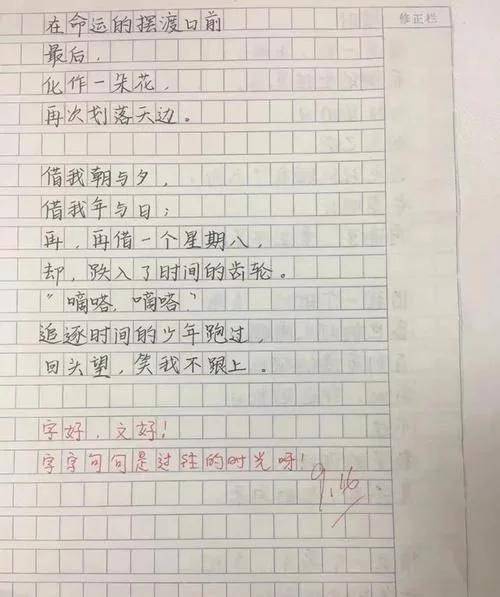 修正栏
在命运的摆渡口前
最后，
化作一朵花，
再次划落天边。
借我朝与夕，
借我年与日；
再，再借一个星期八，
却，跌入了时间的齿轮。
“嘀嗒，嘀嗒”
追逐时间的少年跑过，
回头望，笑我不跟上。
字好，文好！
字字句句是过往的时光呀！
9.16